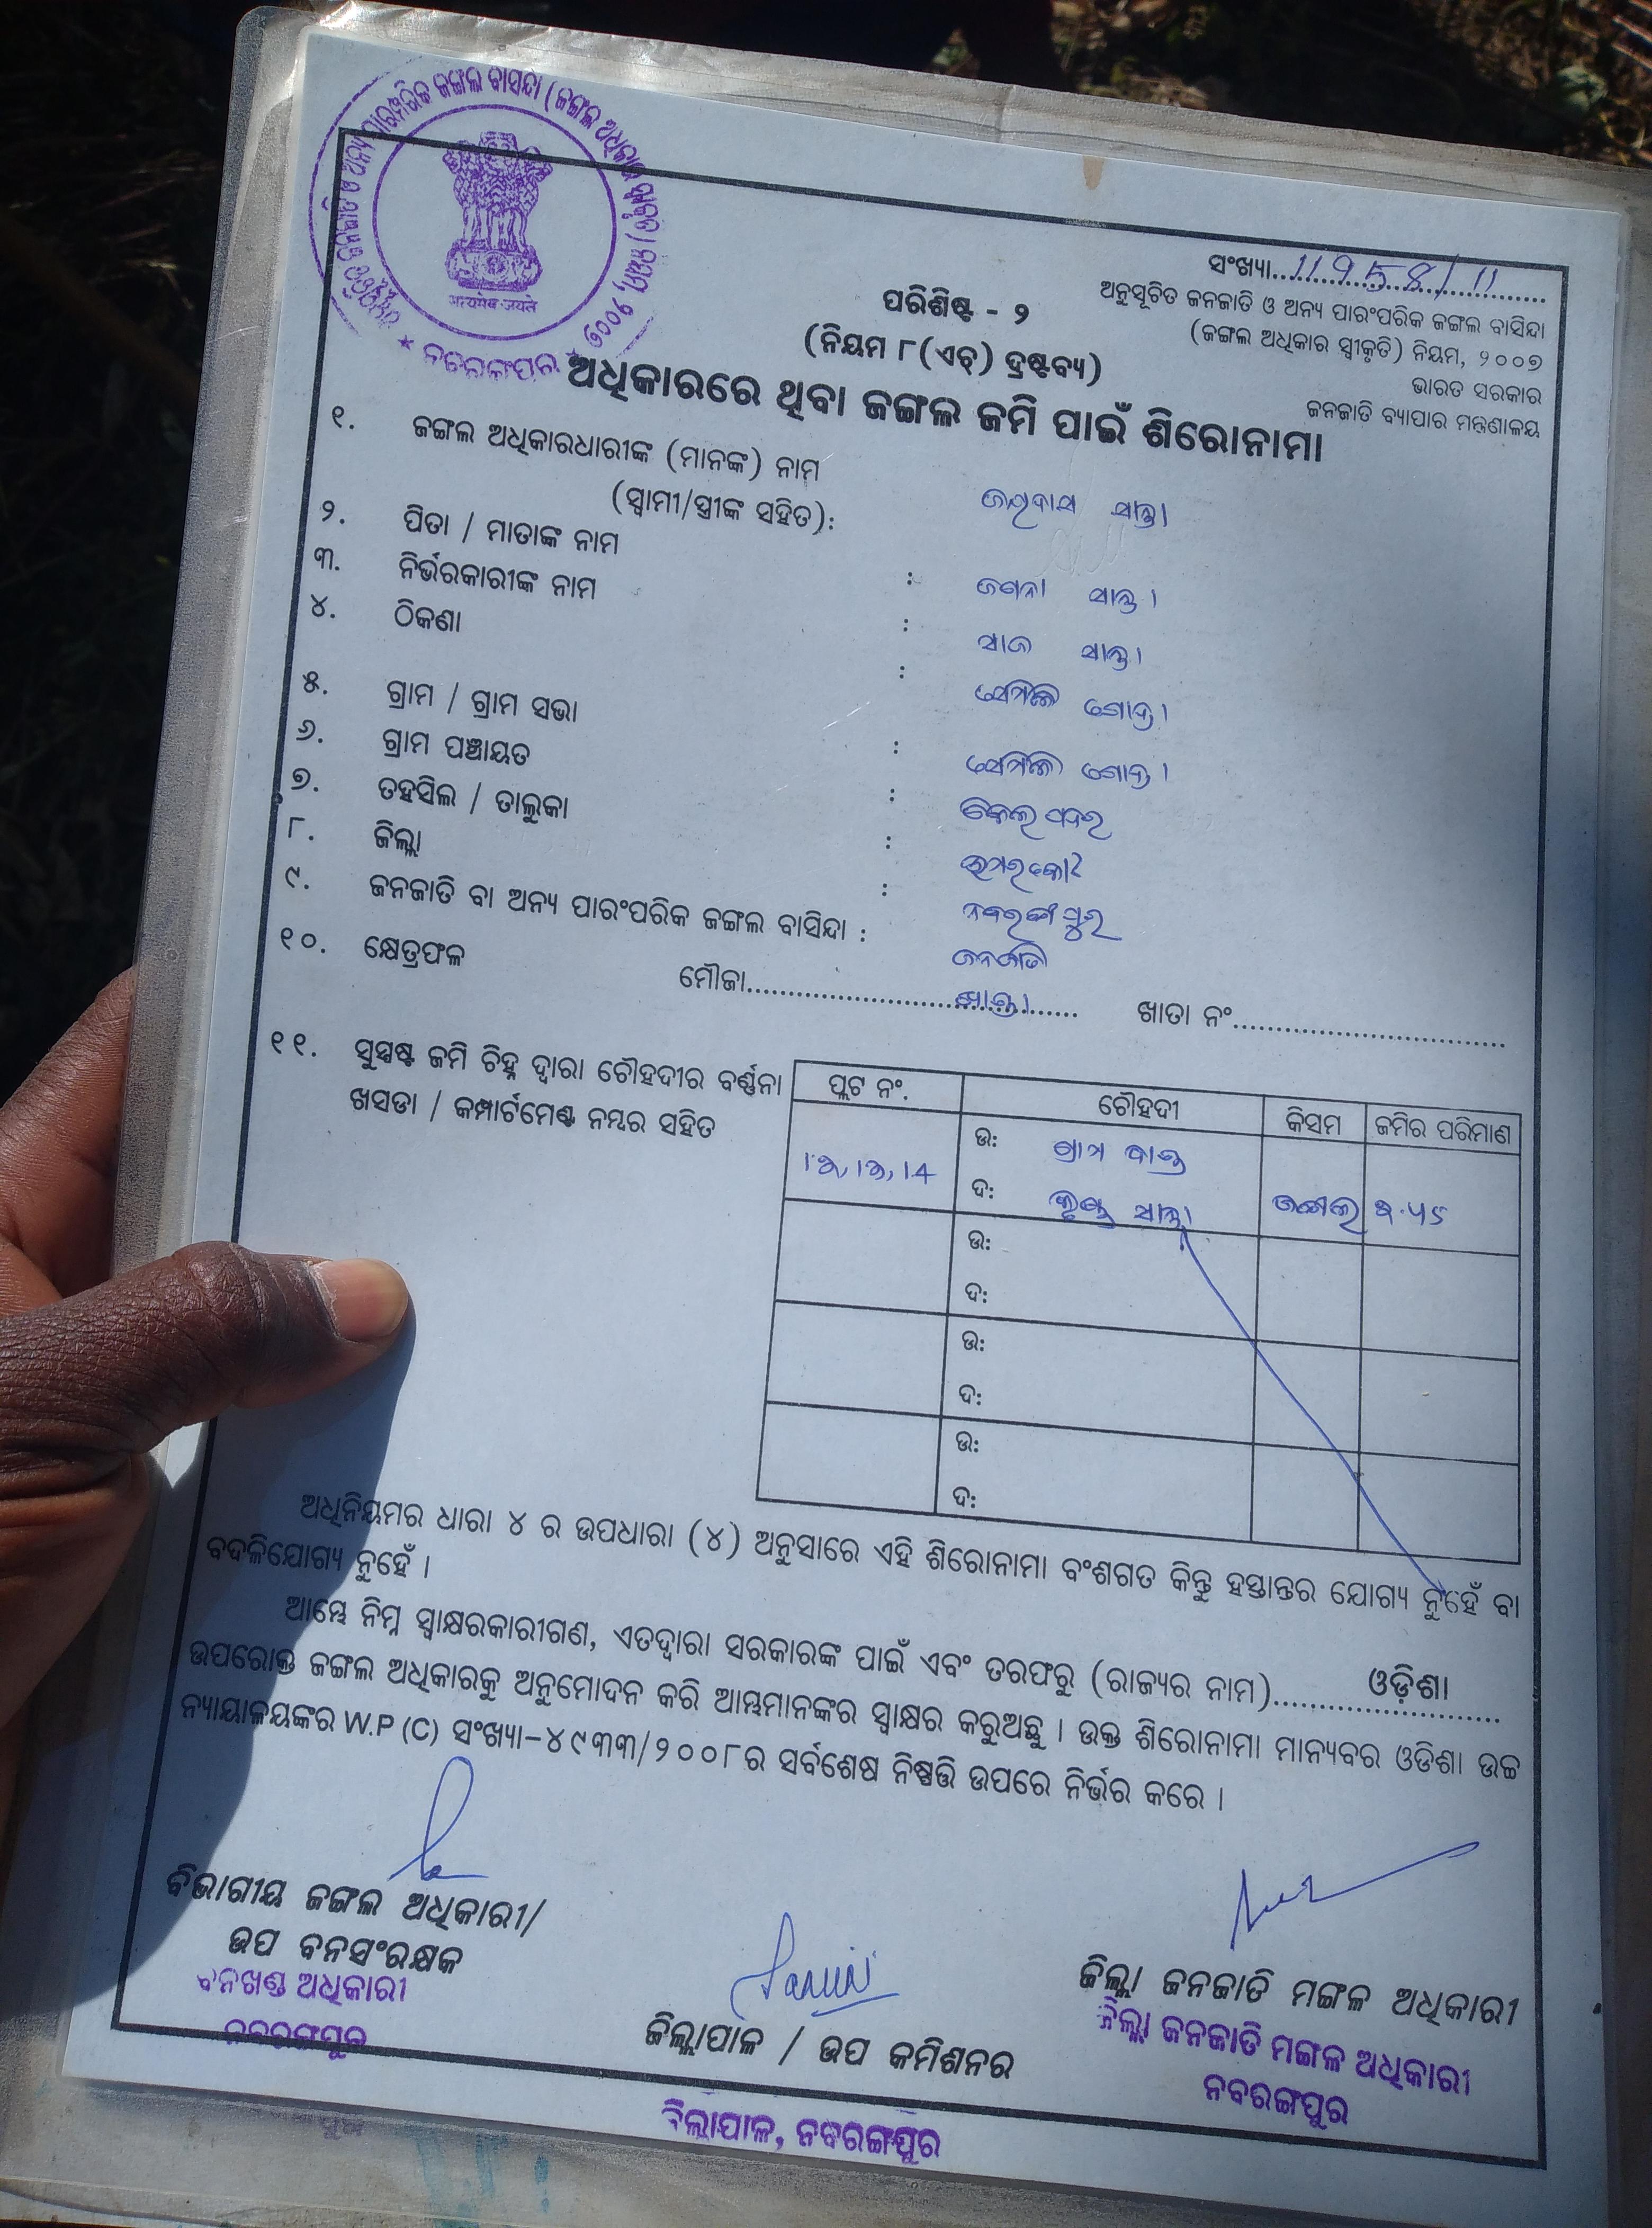 ସଂଖ୍ୟା...11958/11
ଅନୁସୂଚିତ ଜନଜାତି ଓ ଅନ୍ୟ ପାରଂପରିକ ଜଙ୍ଗଲ ବାସିନ୍ଦା
(ଜଙ୍ଗଲ ଅଧିକାର ସ୍ୱୀକୃତି) ନିୟମ, ୨୦୦୭
ଭାରତ ସରକାର
ଜନଜାତି ବ୍ୟାପାର ମନ୍ତ୍ରଣାଳୟ
सत्यमेव जयते
ପରିଶିଷ୍ଟ - ୨
(ନିୟମ ୮(ଏଚ୍) ଦ୍ରଷ୍ଟବ୍ୟ)
ଅଧିକାରରେ ଥିବା ଜଙ୍ଗଲ ଜମି ପାଇଁ ଶିରୋନାମା
୧. ଜଙ୍ଗଲ ଅଧିକାରଧାରୀଙ୍କ (ମାନଙ୍କ) ନାମ
(ସ୍ୱାମୀ/ସ୍ତ୍ରୀଙ୍କ ସହିତ): ଜୟଦାସ ସାନ୍ତା
୨. ପିତା / ମାତାଙ୍କ ନାମ : ଜଗନା ସାନ୍ତା
୩. ନିର୍ଭରକାରୀଙ୍କ ନାମ : ସାଜ ସାନ୍ତା
୪. ଠିକଣା :
୫. ଗ୍ରାମ / ଗ୍ରାମ ସଭା :
୬. ଗ୍ରାମ ପଞ୍ଚାୟତ :
୭. ତହସିଲ / ତାଲୁକା : ଉମରକୋଟ
୮. ଜିଲ୍ଲା : ନବରଙ୍ଗପୁର
୯. ଜନଜାତି ବା ଅନ୍ୟ ପାରଂପରିକ ଜଙ୍ଗଲ ବାସିନ୍ଦା : ଜନଜାତି
୧୦. କ୍ଷେତ୍ରଫଳ ମୌଜା........................ ଖାତା ନଂ........................
୧୧. ସୁସ୍ପଷ୍ଟ ଜମି ଚିହ୍ନ ଦ୍ୱାରା ଚୌହଦୀର ବର୍ଣ୍ଣନା
ଖସଡା / କମ୍ପାର୍ଟମେଣ୍ଟ ନମ୍ବର ସହିତ
ପ୍ଲଟ ନଂ. ଚୌହଦୀ କିସମ ଜମିର ପରିମାଣ
ଉ: ଗ୍ରାମ
ଦ: ସାନ୍ତା ଜଙ୍ଗଲ
ଉ:
ଦ:
ଉ:
ଦ:
ଉ:
ଦ:
ଅଧିନିୟମର ଧାରା ୪ ର ଉପଧାରା (୪) ଅନୁସାରେ ଏହି ଶିରୋନାମା ବଂଶଗତ କିନ୍ତୁ ହସ୍ତାନ୍ତର ଯୋଗ୍ୟ ନୁହେଁ ବା
ବଦଳିଯୋଗ୍ୟ ନୁହେଁ ।
ଆମ୍ଭେ ନିମ୍ନ ସ୍ୱାକ୍ଷରକାରୀଗଣ, ଏତଦ୍ୱାରା ସରକାରଙ୍କ ପାଇଁ ଏବଂ ତରଫରୁ (ରାଜ୍ୟର ନାମ)........ଓଡ଼ିଶା........
ଉପରୋକ୍ତ ଜଙ୍ଗଲ ଅଧିକାରକୁ ଅନୁମୋଦନ କରି ଆମ୍ଭମାନଙ୍କର ସ୍ୱାକ୍ଷର କରୁଅଛୁ । ଉକ୍ତ ଶିରୋନାମା ମାନ୍ୟବର ଓଡିଶା ଉଚ୍ଚ
ନ୍ୟାୟାଳୟଙ୍କର W.P (C) ସଂଖ୍ୟା-୪୯୩୩/୨୦୦୮ର ସର୍ବଶେଷ ନିଷ୍ପତ୍ତି ଉପରେ ନିର୍ଭର କରେ ।
ବିଭାଗୀୟ ଜଙ୍ଗଲ ଅଧିକାରୀ/
ଉପ ବନସଂରକ୍ଷକ
ବନଖଣ୍ଡ ଅଧିକାରୀ
ନବରଙ୍ଗପୁର
ଜିଲ୍ଲାପାଳ / ଉପ କମିଶନର
ଜିଲ୍ଲାପାଳ, ନବରଙ୍ଗପୁର
ଜିଲ୍ଲା ଜନଜାତି ମଙ୍ଗଳ ଅଧିକାରୀ
ଜିଲ୍ଲା ଜନଜାତି ମଙ୍ଗଳ ଅଧିକାରୀ
ନବରଙ୍ଗପୁର